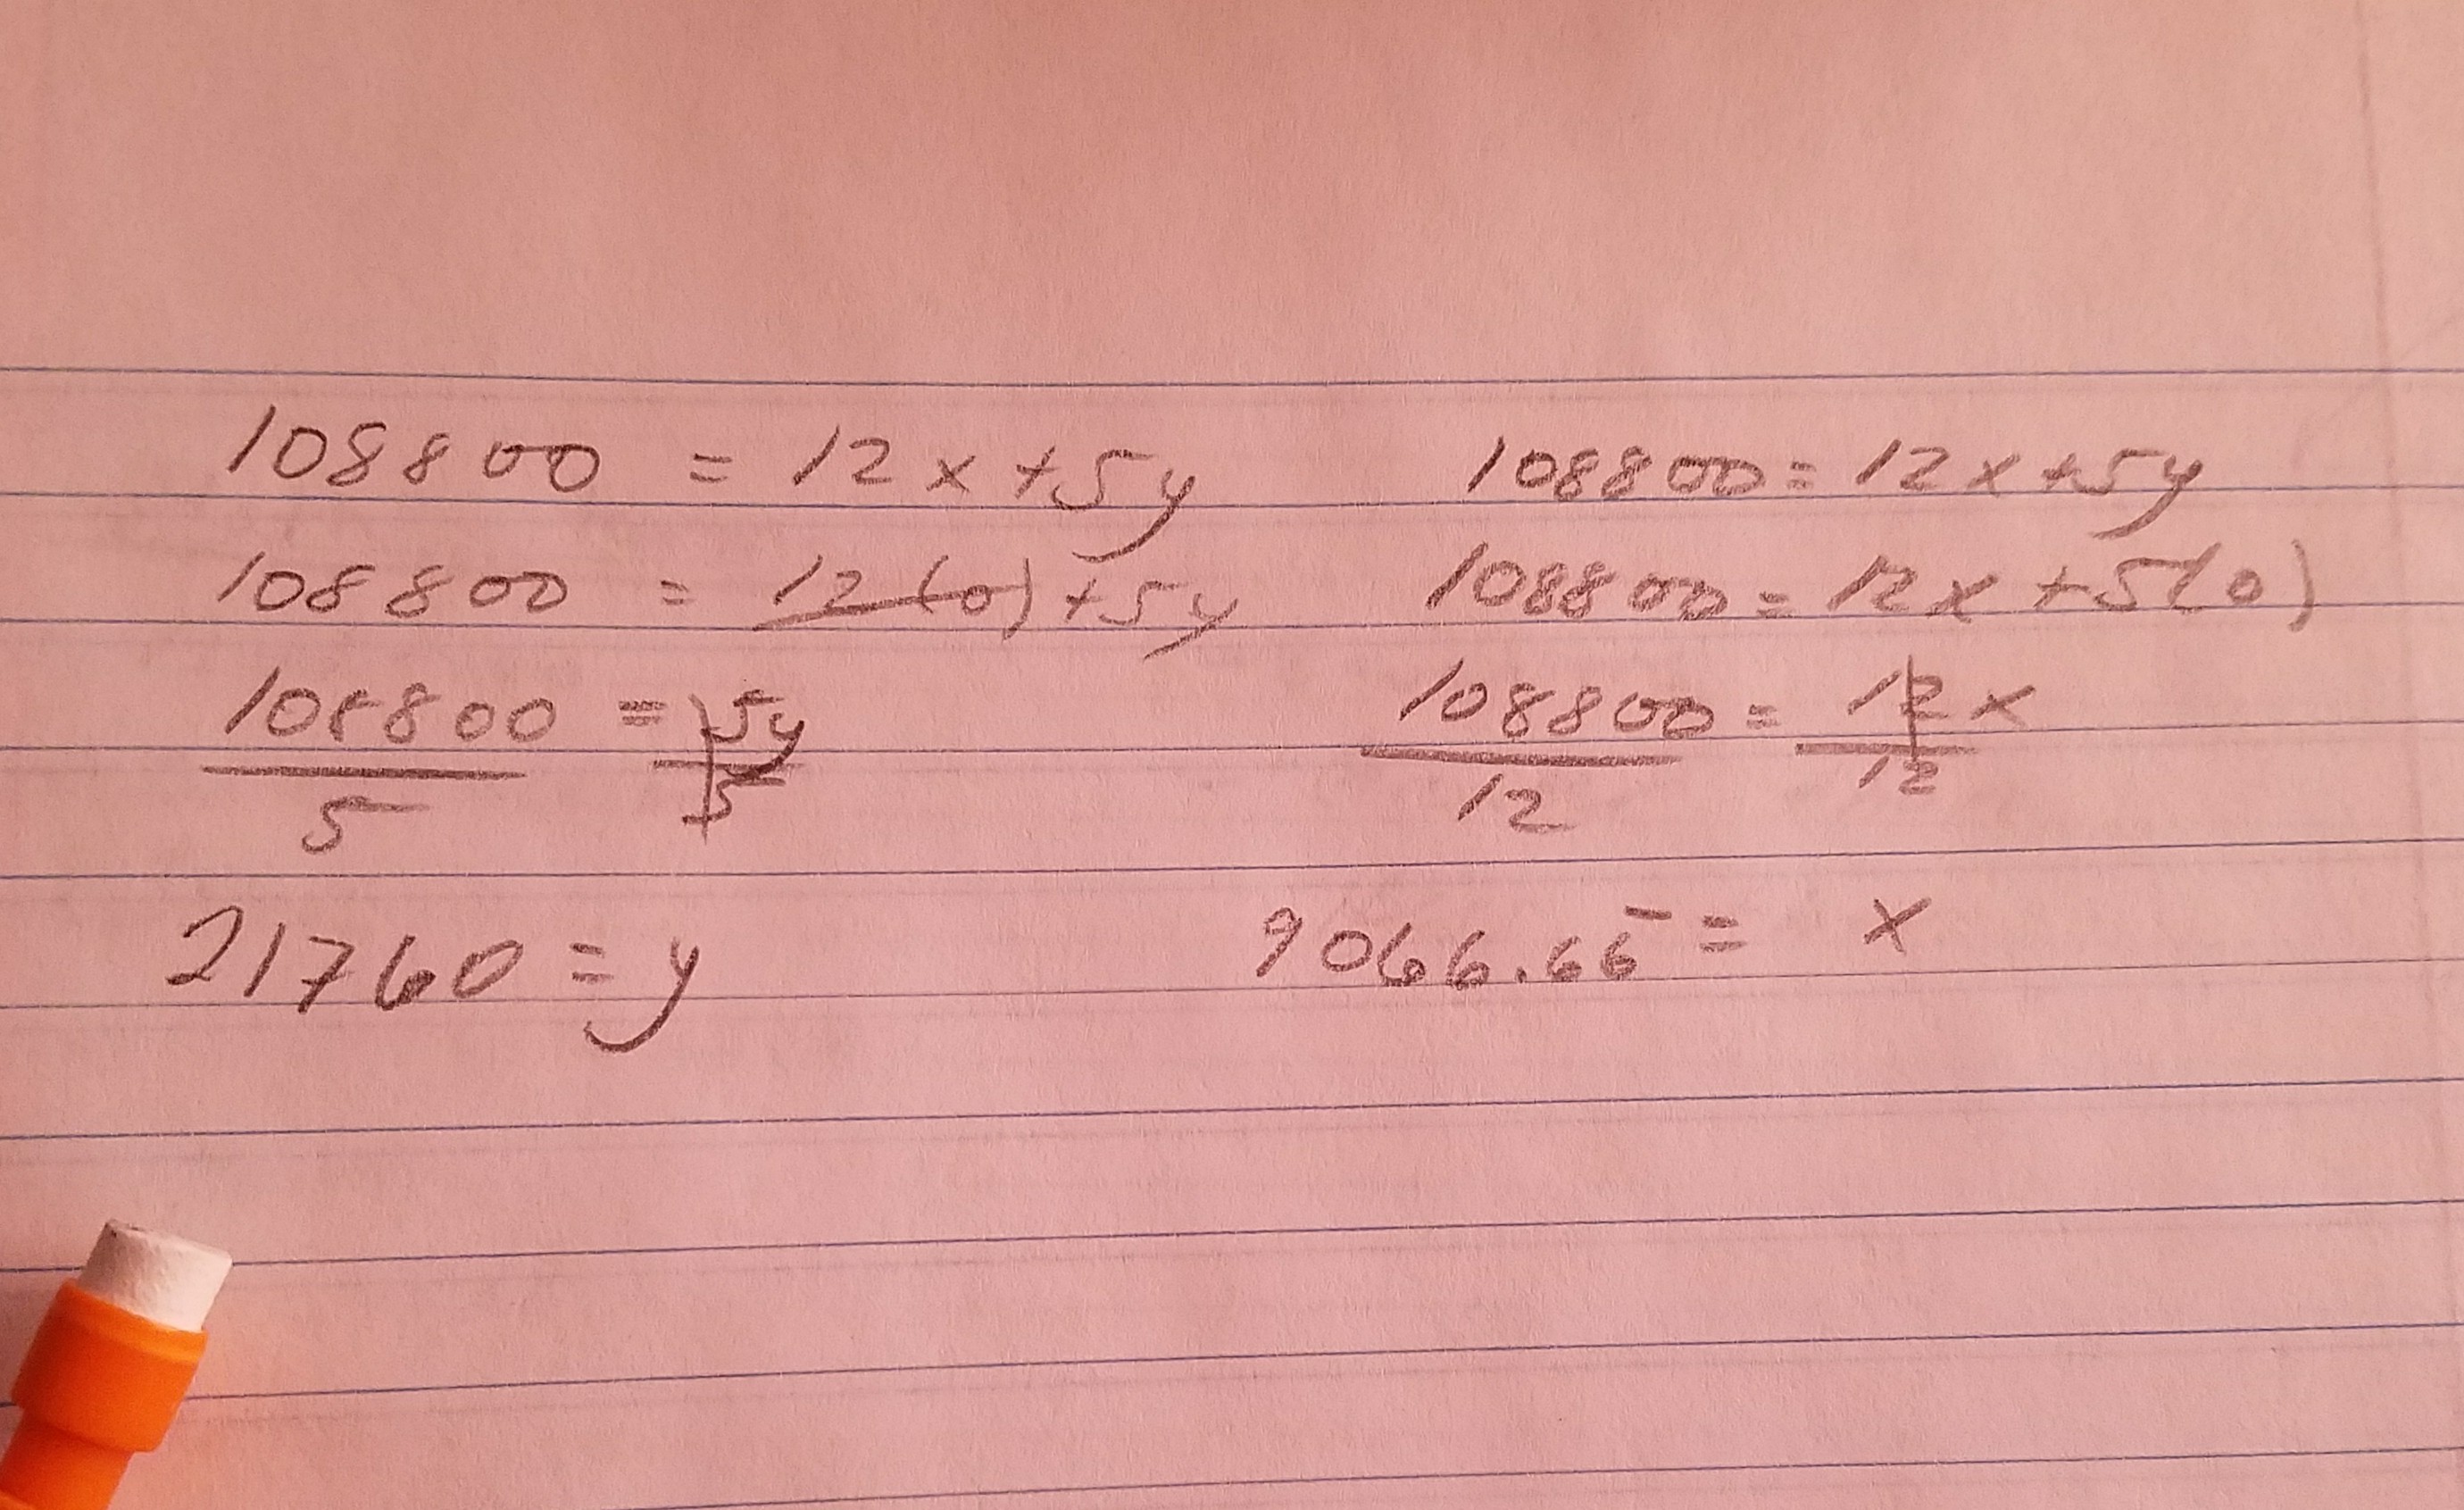 108800 = 12x+5y
108800 = 12(0)+5y
108800 = 5y
5 5
21760 = y
108800 = 12x+5y
108800 = 12x+5(0)
108800 = 12x
12 12
9066.66̅ = x